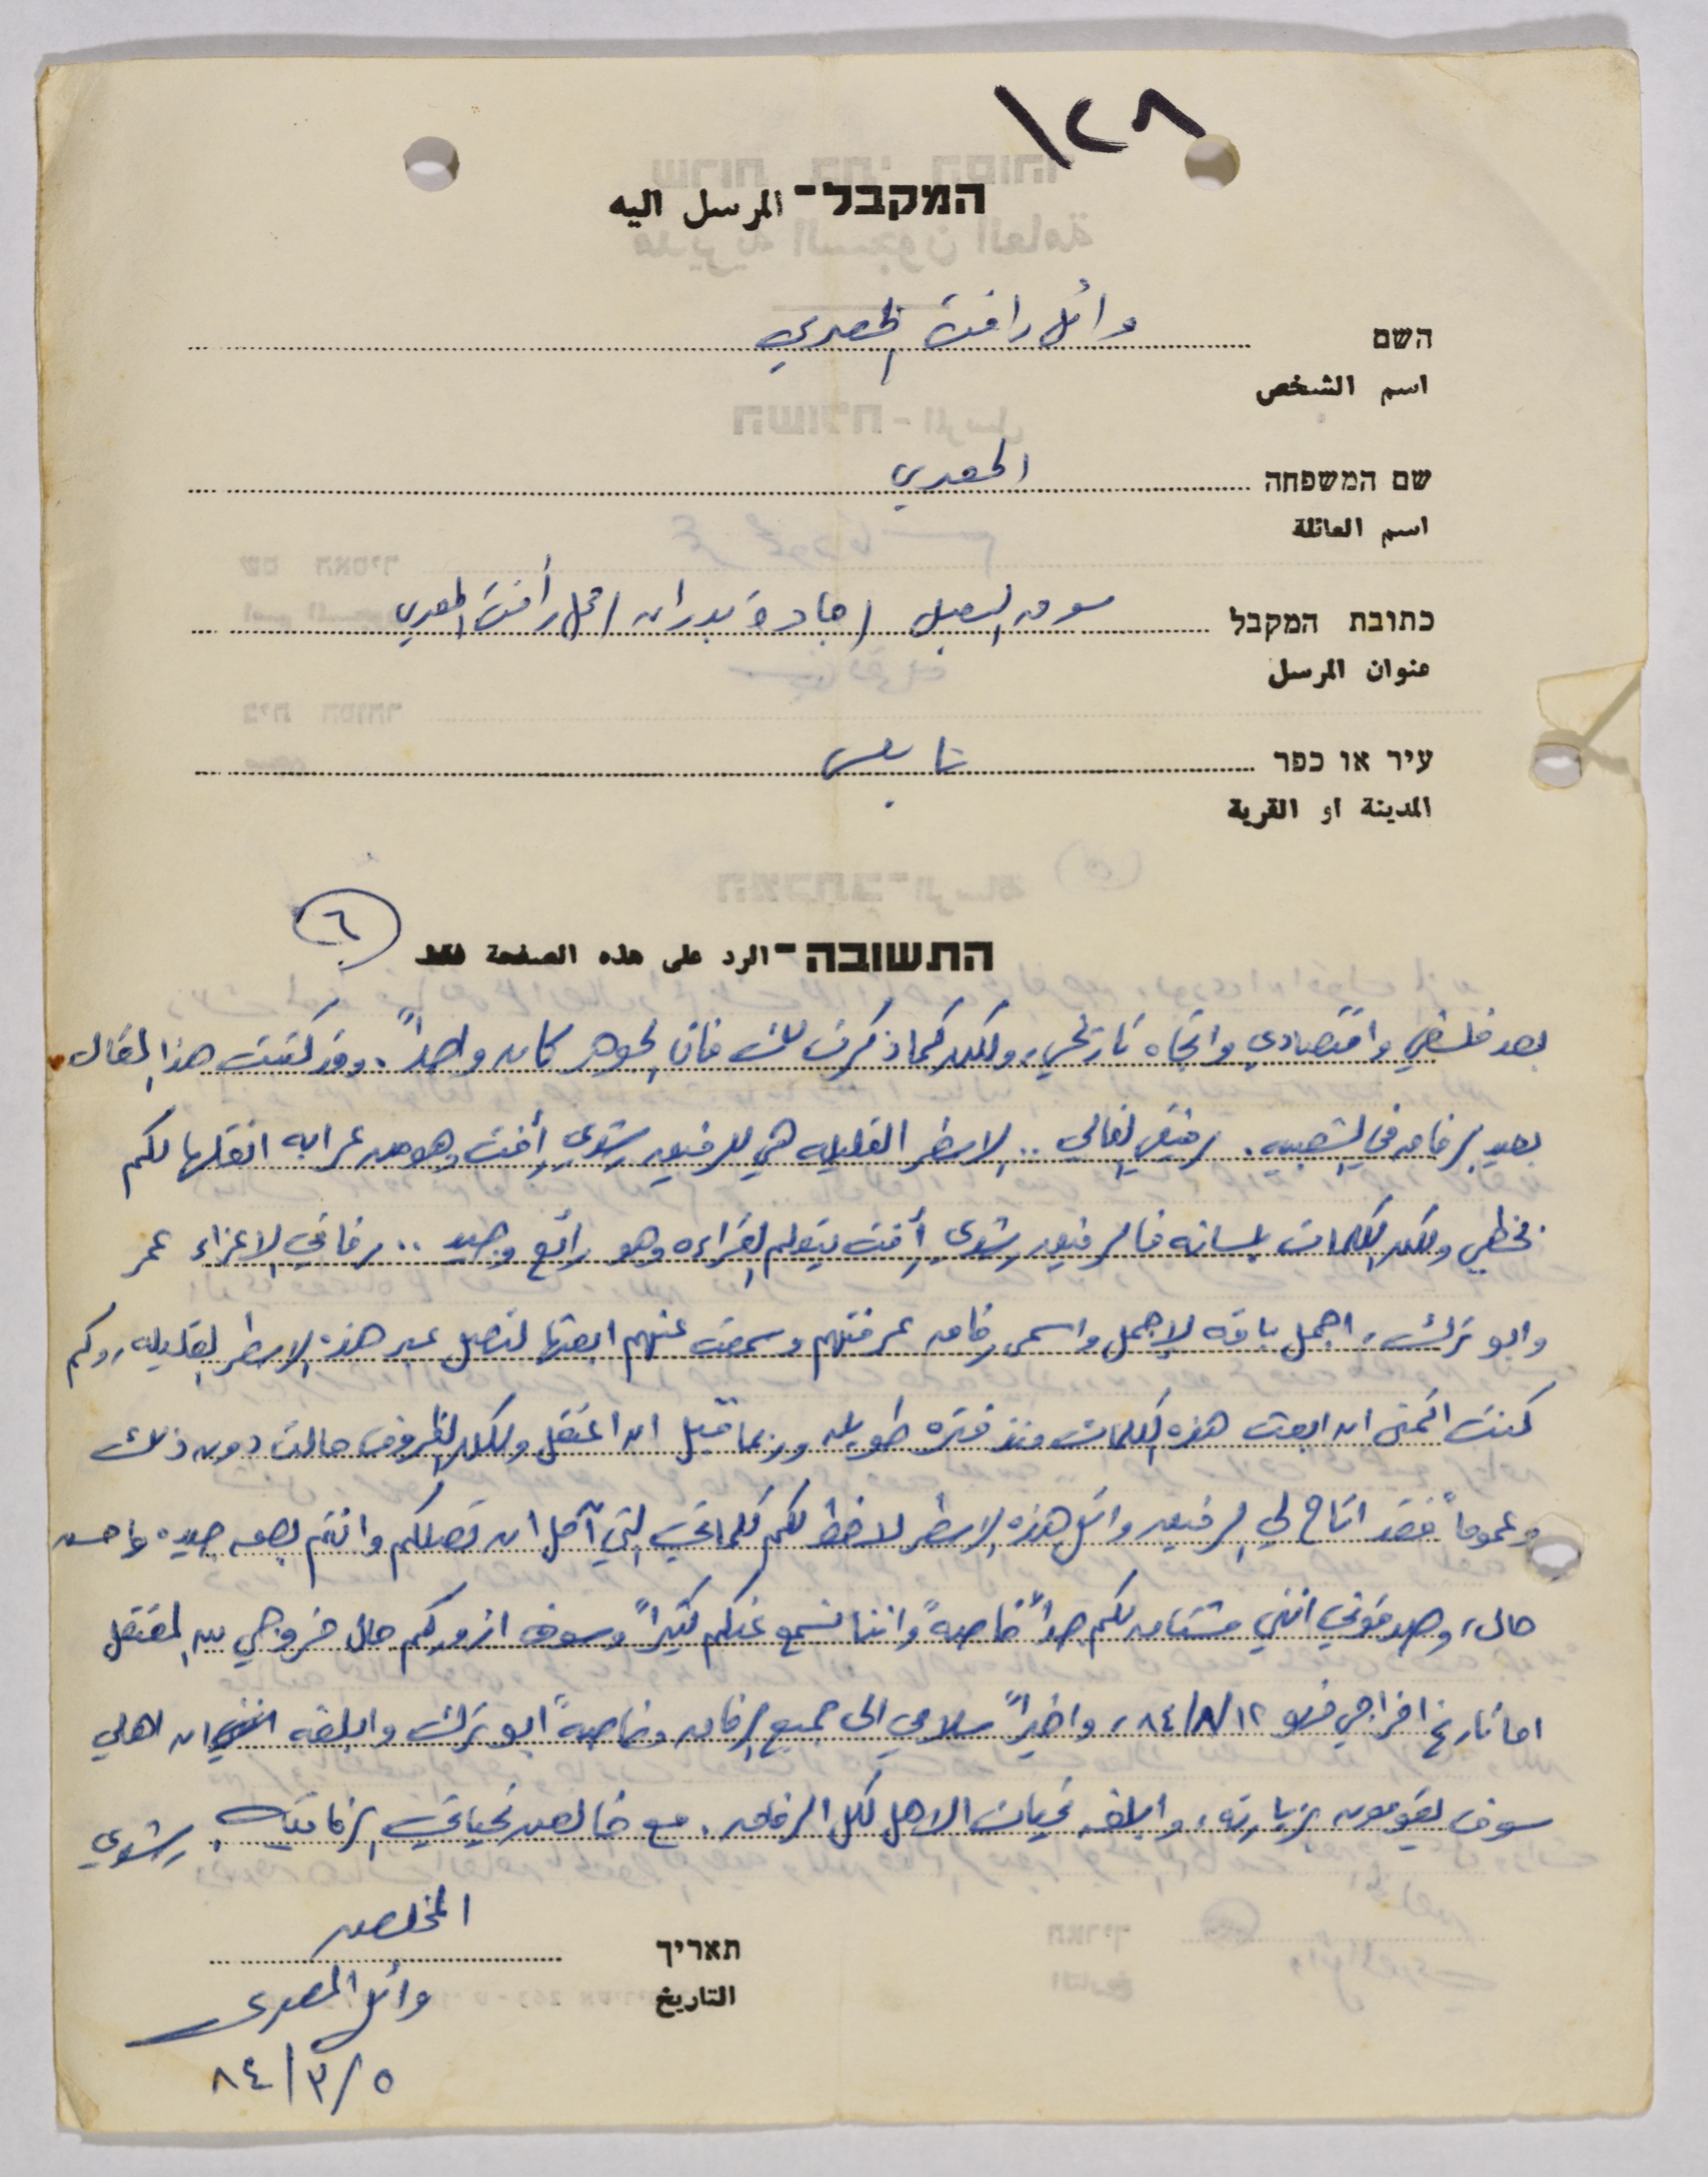 ١٢٨
המקבל - المرسل اليه
השם وائل رأفت المصري
اسم الشخص
שם המשפחה المصري
اسم العائلة
כתובת המקבל سوق البصل / عمارة بدران / محل رأفت المصري
عنوان المرسل
עיר או כפר نابلس
المدينة او القرية
٦
התשובה - الرد على هذه الصفحة فقط
بعد فلسفي واقتصادي واتجاه تاريخي، ولكن كما ذكرت لك فان الجوهر كان واحداً. وقد كتبت هذا المقال
بعيد الرفاق في الشعبيه. رفيقي الغالي .. الاسطر القليله هي للرفيق رشدي رأفت وهو من عرابه انقلها لكم
بخطي ولكن الكلمات بلسانه فالرفيق رشدي رأفت يتعلم القراءه وهو رائع وجيد .. رفاقي الاعزاء عمر
وابو ترك، اجمل باقه لاجمل واسمى رفاق عرفتهم وسمعت عنهم ابعثها لتصل عبر هذه الاسطر القليله، وكم
كنت اتمنى ان ابعث هذه الكلمات منذ فتره طويله وربما قبل ان اعتقل ولكن الظروف حالت دون ذلك
وعموماً فقد اتاح لي الرفيق وائل هذه الاسطر لاخط لكم كلماتي التي آمل ان تصلكم وانتم بصحه جيده واحسن
حال، وصدقوني انني مشتاق لكم جداً خاصةً واننا نسمع عنكم كثيراً وسوف ازوركم حال خروجي من المعتقل
اما تاريخ افراجي فهو ٨٤/٨/١٢، واخيراً سلامي الى جميع الرفاق وخاصةً ابو ترك وابلغه ان اهلي
سوف يقومون بزيارته، وابلغه تحيات الاهل لكل الرفاق. مع خالص تحياتي الرفاقيه رشدي
תאריך المخلص
التاريخ وائل المصري
٨٤/٣/٥